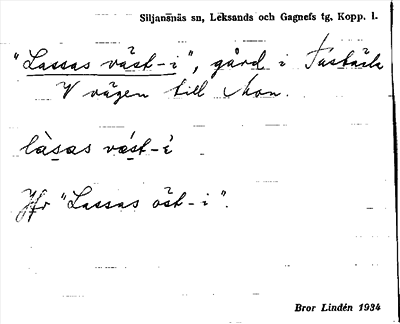 Siljansnäs sn, Leksands och Gagnefs tg, Kopp. l.
"Lassas väst-i", gård i
V vägen till Mon.
làsas væ̀st-i
Jfr "Lassas öst-i".
Bror Lindén 1934